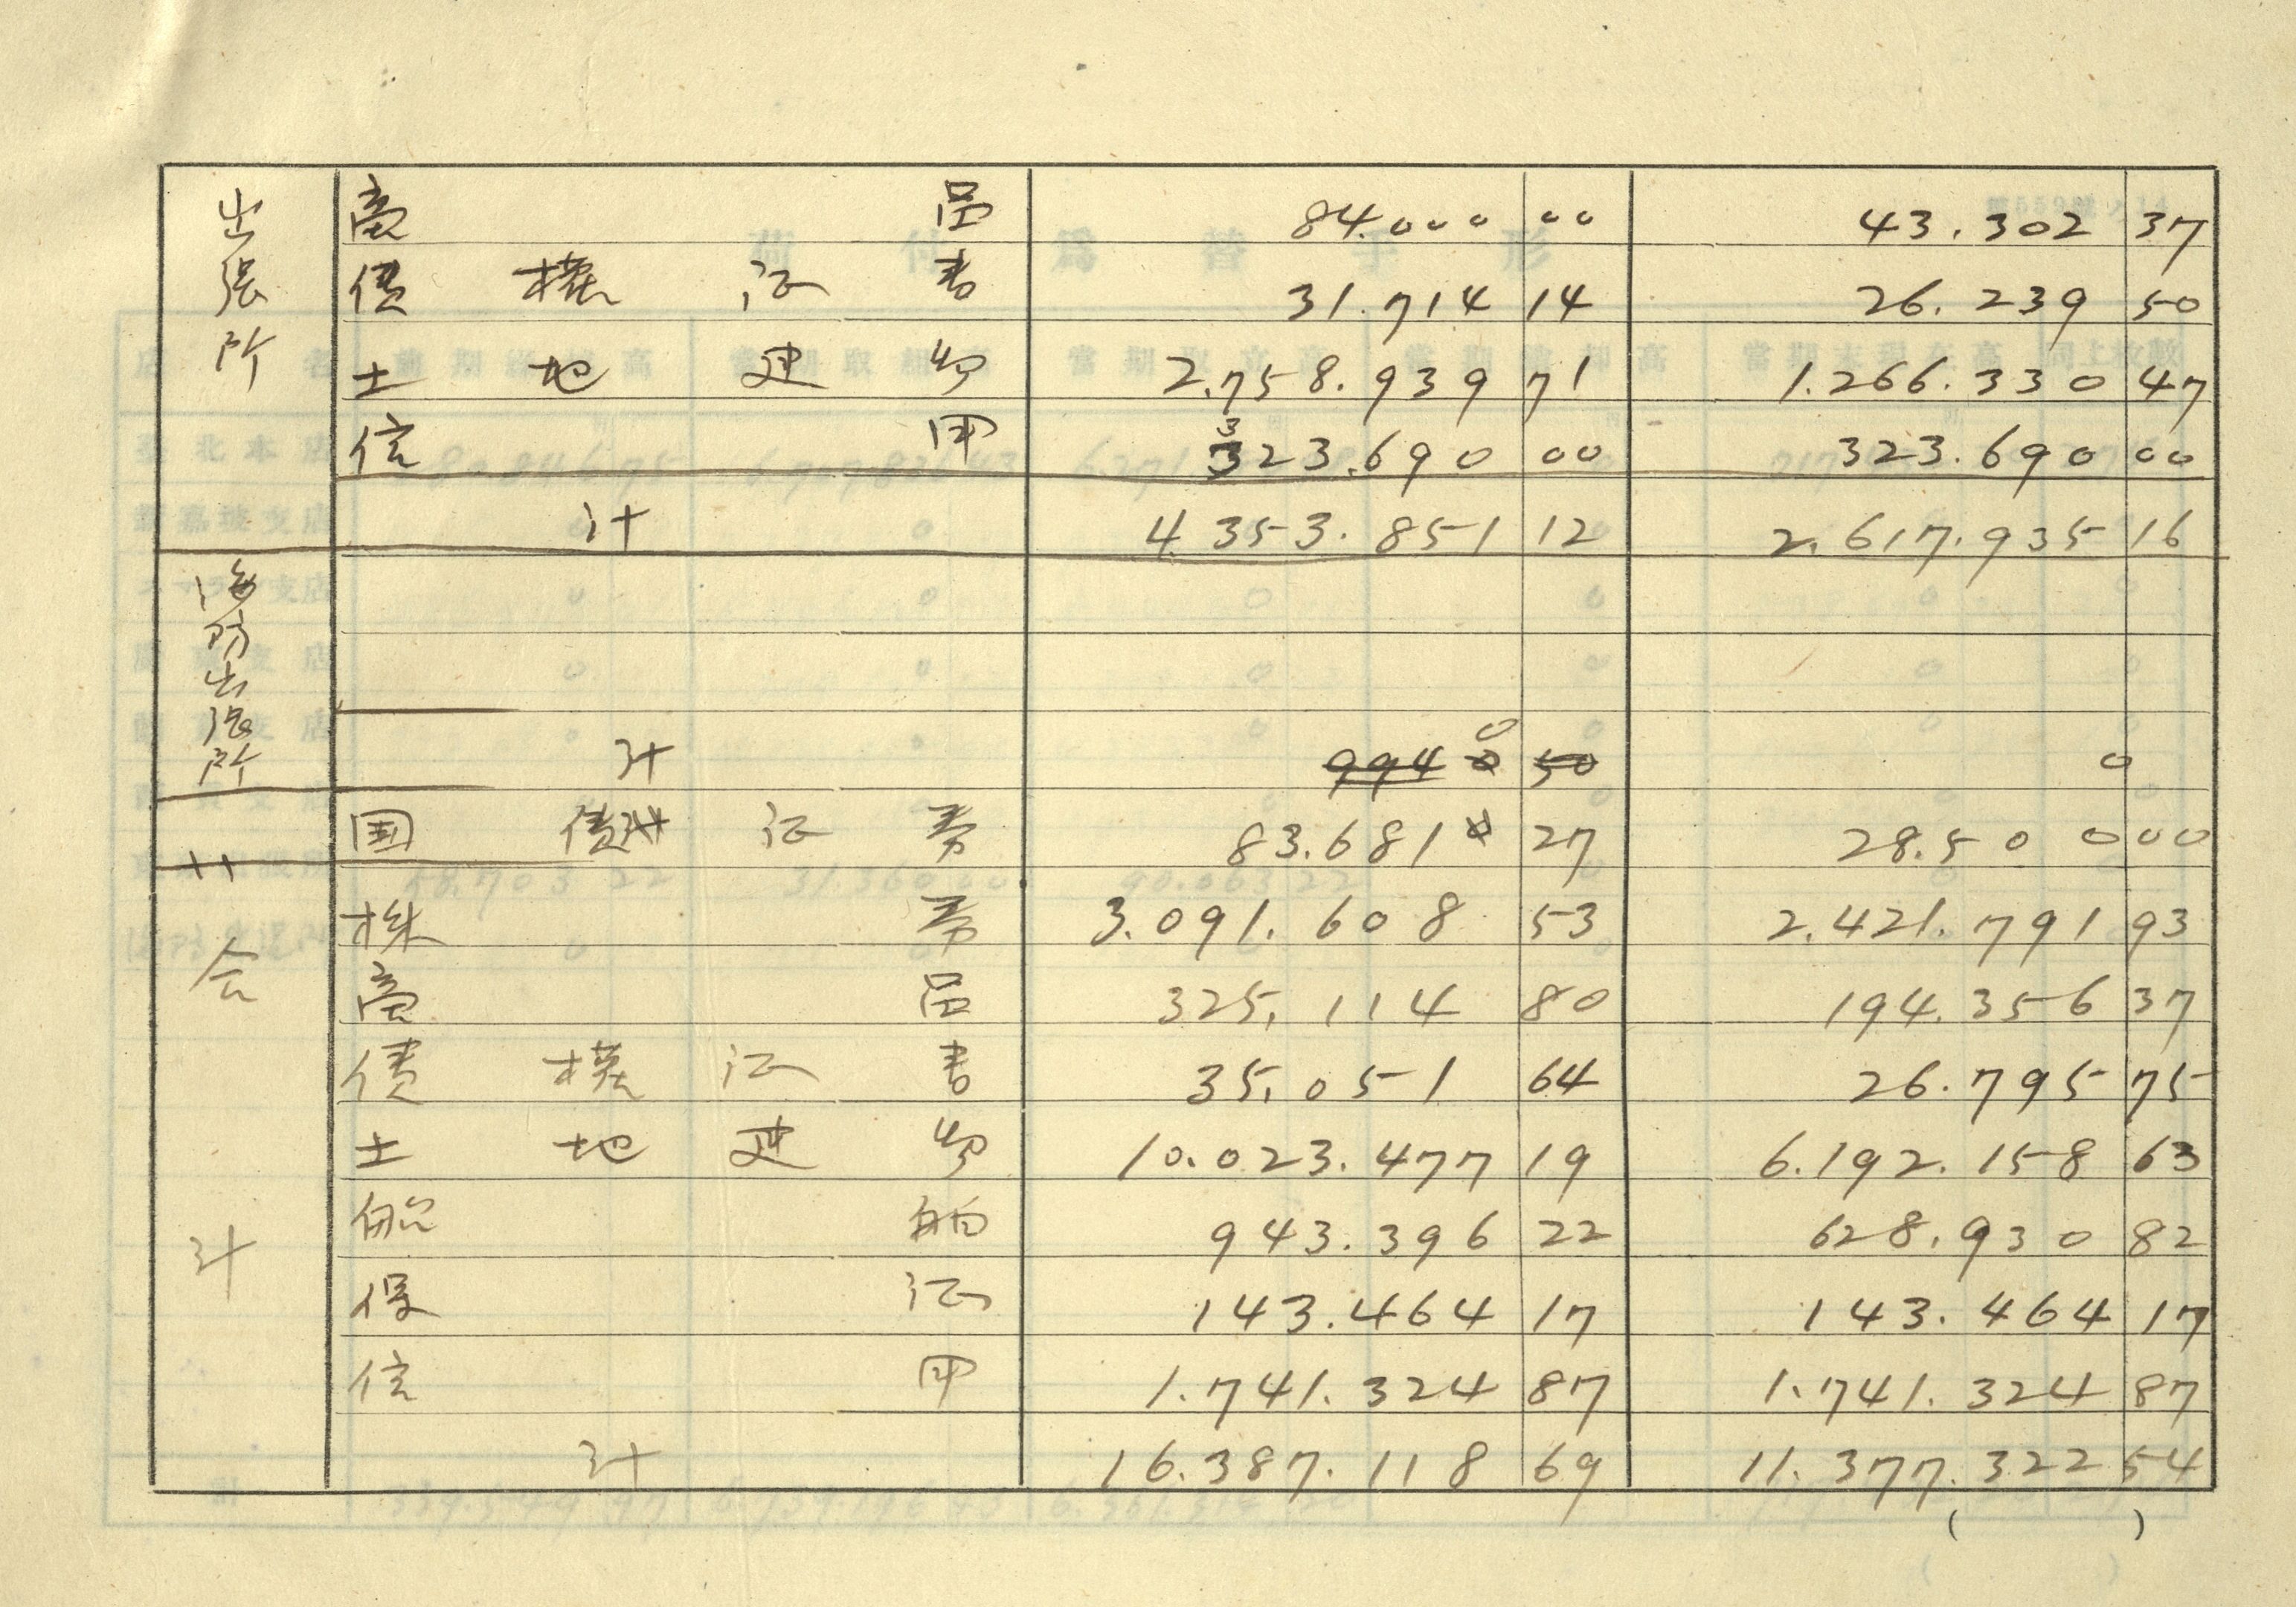 出張所
商品 84.000 00 43.302 37
債権证書 31.714 14 26.239 50
土地建物 2.758.939 71 1.266.330 47
信用 323.690 00 323.690 00
計 4 353.851 12 2.617.935 16
海防出張所
計 994 0 50 0 0
合計
国債证券 83.681 27 28.50 0 00
株券 3.091.608 53 2.421.791 93
商品 325.114 80 194.356 37
債権证書 35.051 64 26.795 75
土地建物 10.023.477 19 6.192.158 63
船舶 943.396 22 628.930 82
保证 143.464 17 143.464 17
信用 1.741.324 87 1.741.324 87
計 16.387.118 69 11.377.322 54
( )